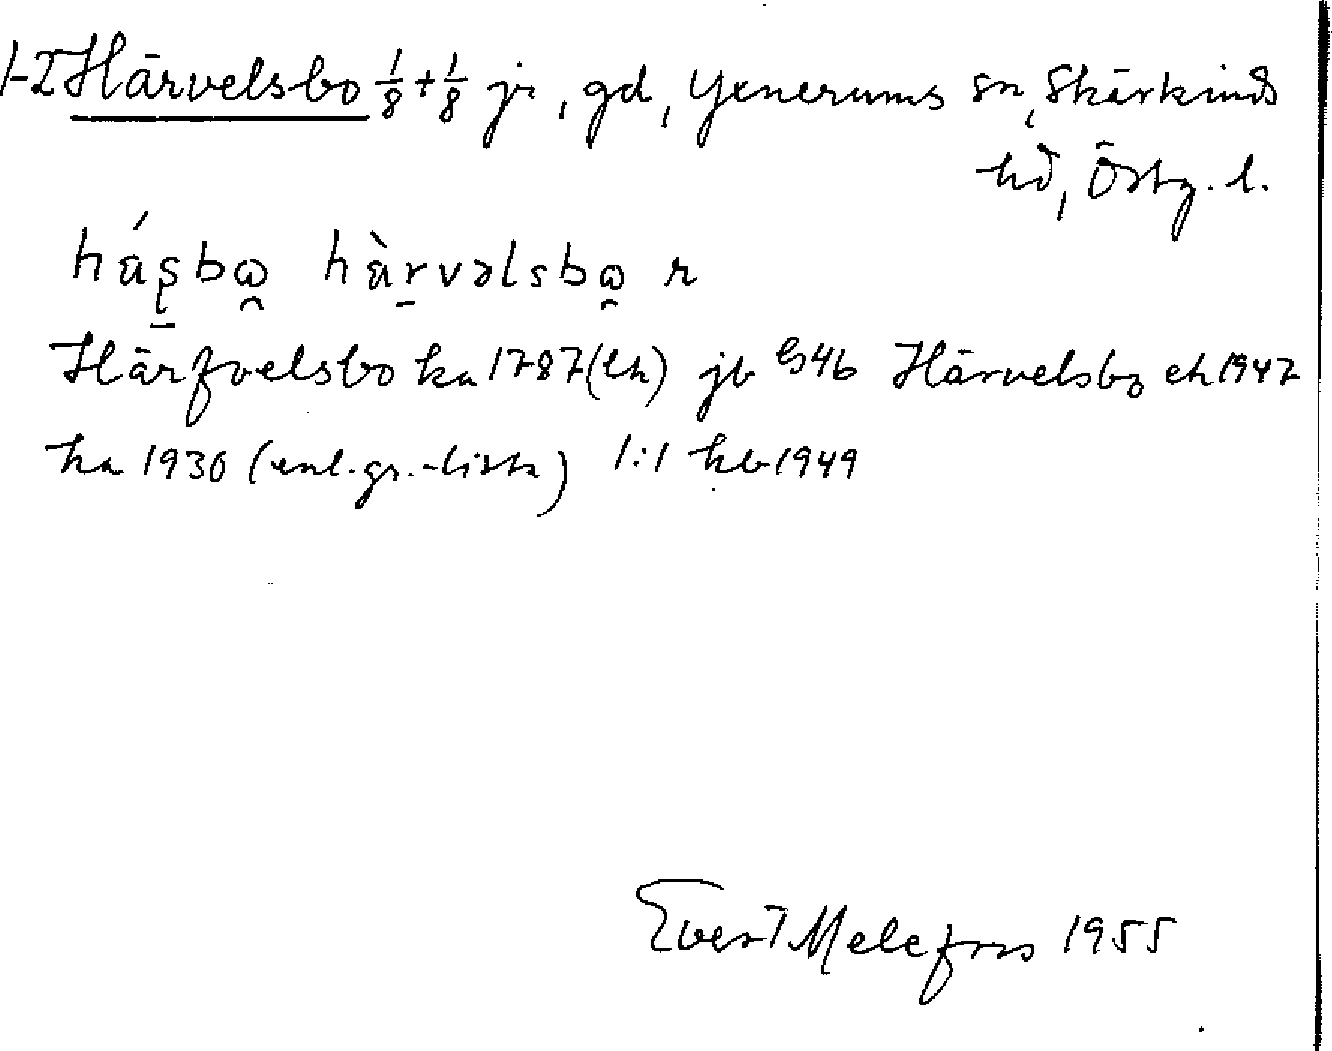 1-2 Härvelsbo 1/8 + 1/8 jr, gd, Yxnerums sn, Skärkinds
hd, Östg. l.
Härfvelsbo ka 1787 (lh) jb 1946 Härvelsbo ek 1947
ka 1930 (enl. gr.-lista) 1:1 kb 1949
Evert Melefors 1955